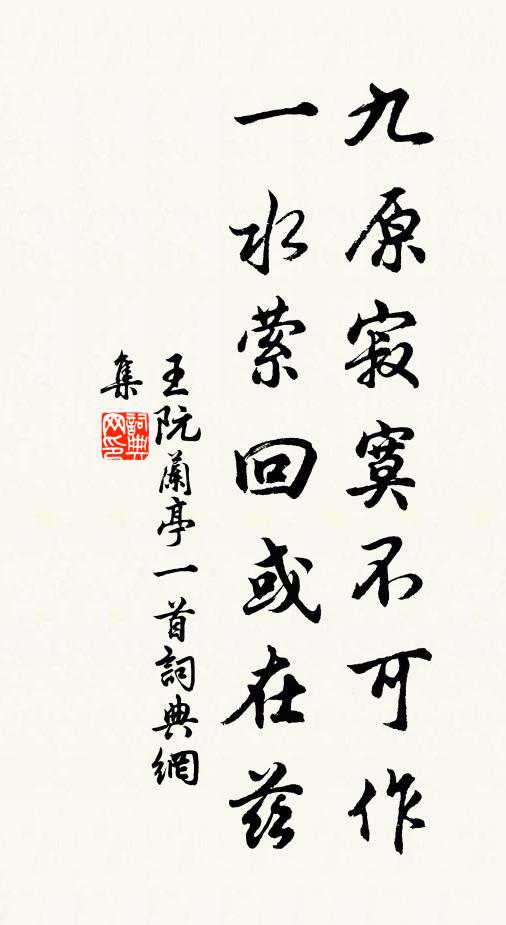 九原寂寞不可作
一水萦回或在茲
王阮蘭亭一首詞典網
集
詞典
网印